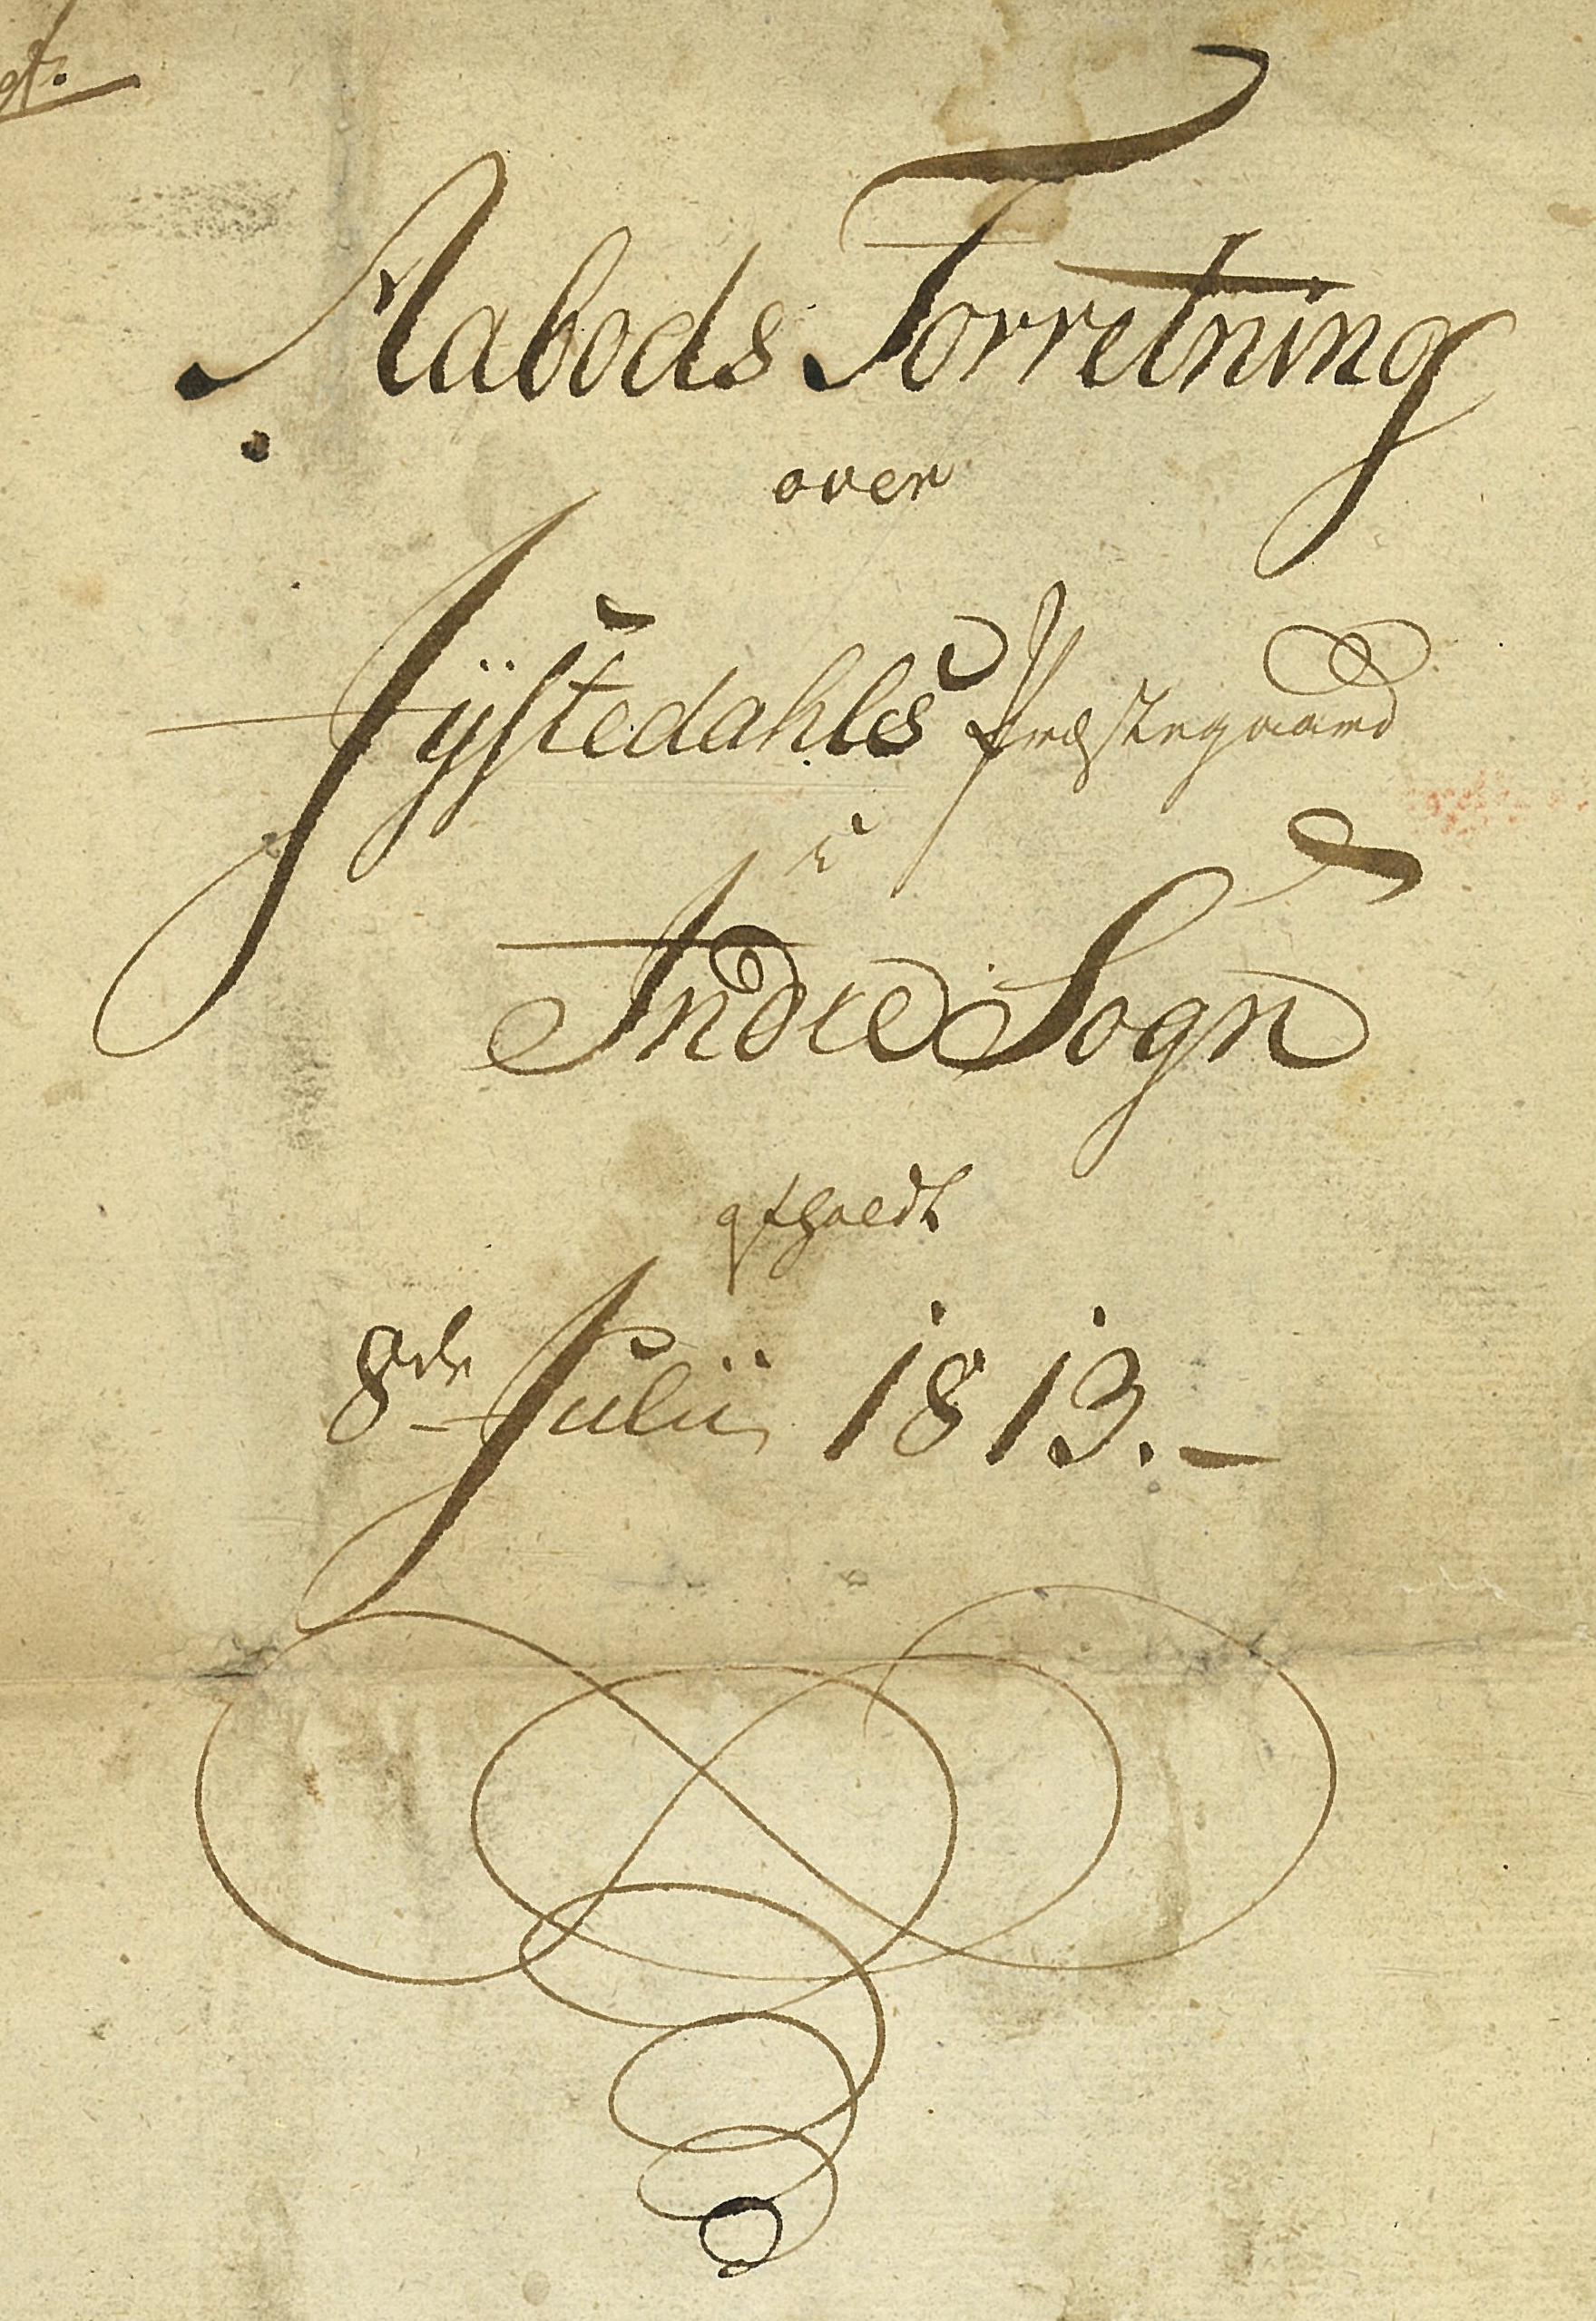 Aabods Forretning
over
Jÿstedahls Præstegaard
i
Indre Sogn
afholdt
8de Julii 1813.